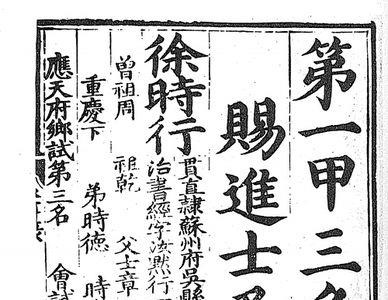 第一甲三名
賜進士
徐時行
貫直隸蘇州府吳縣
治書經字汝默行
曾祖周 祖乾 父士章
重慶下 弟時德 時
應天府鄉試第三名 會試